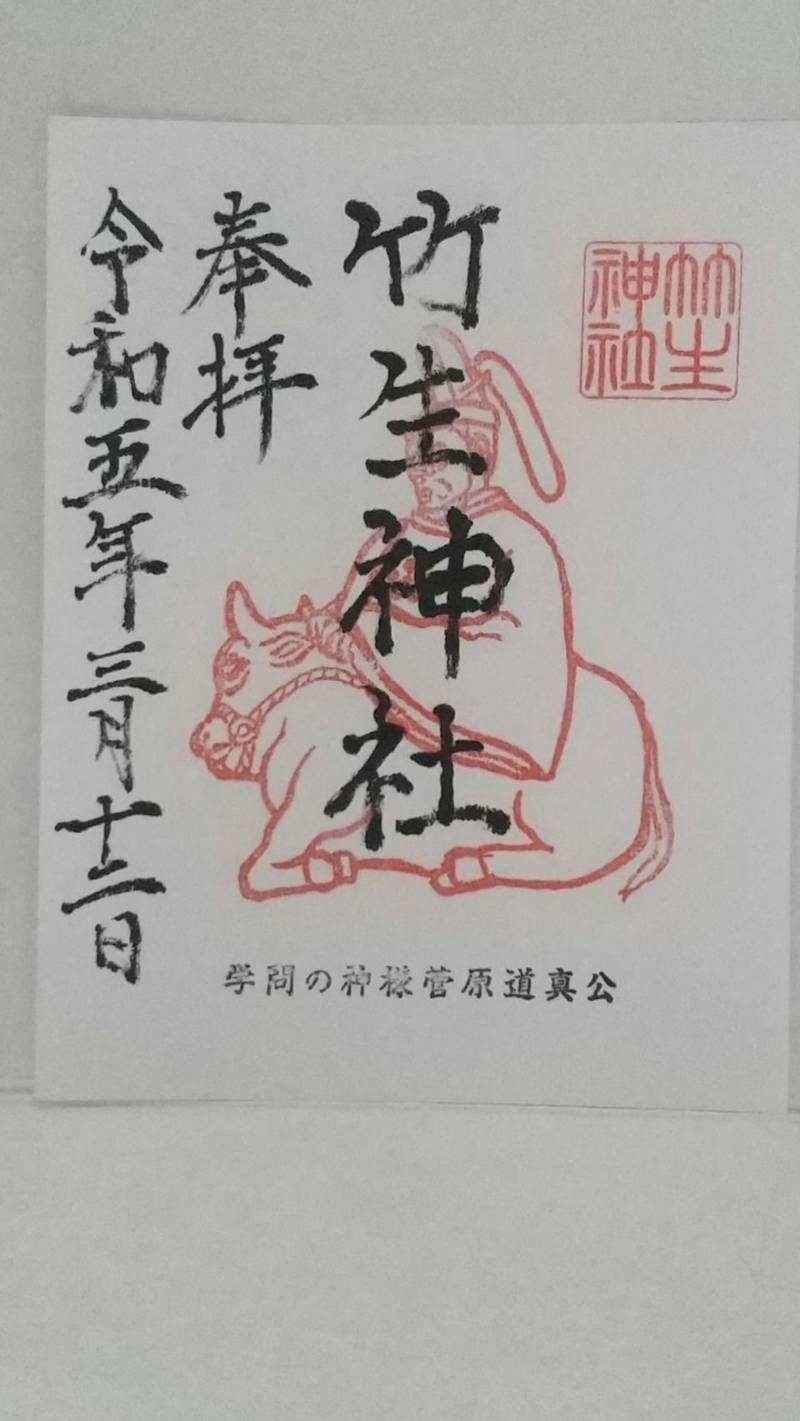 竹生神社
竹生神社
奉拝
令和五年三月十二日
学問の神様菅原道真公